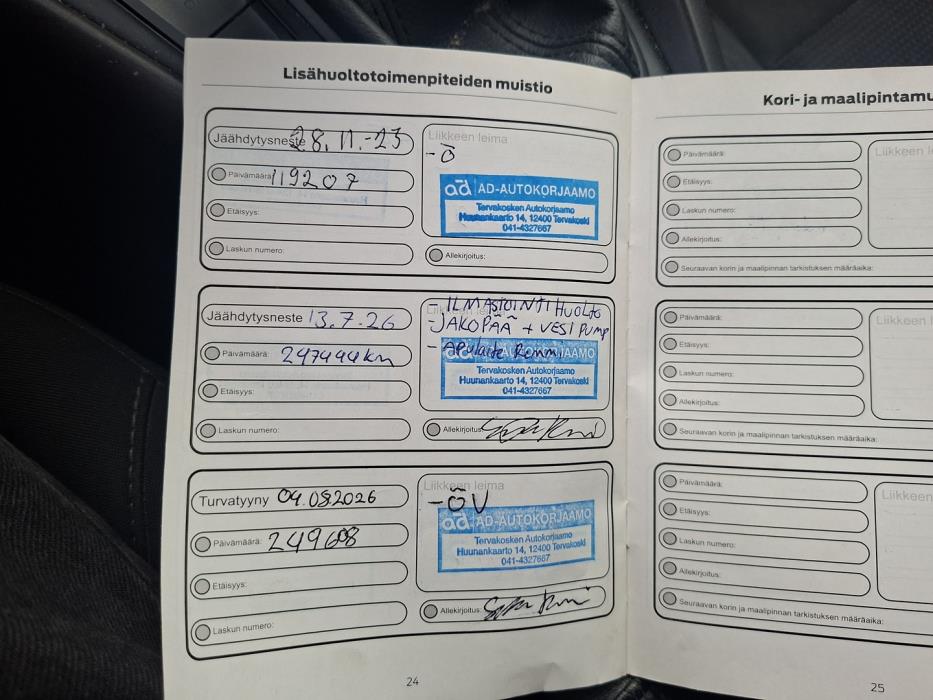 Lisähuoltotoimenpiteiden muistio
Jäähdytysneste 28.11.-23
Päivämäärä: 119207
Etäisyys:
Laskun numero:
Liikkeen leima
- Ö
ad AD-AUTOKORJAAMO
Tervakosken Autokorjaamo
Huunankaarto 14, 12400 Tervakoski
041-4327667
Allekirjoitus:
Jäähdytysneste 13.7.26
Päivämäärä: 247944km
Etäisyys:
Laskun numero:
- ILMASTOINTI HUOLTO
- JAKOPÄÄ + VESI PUMP
- APULAITE Remmi
ad AUTOKORJAAMO
Tervakosken Autokorjaamo
Huunankaarto 14, 12400 Tervakoski
041-4327667
Allekirjoitus:
Turvatyyny 04.08.2026
Päivämäärä: 249608
Etäisyys:
Laskun numero:
Liikkeen leima
- ÖV
ad AD-AUTOKORJAAMO
Tervakosken Autokorjaamo
Huunankaarto 14, 12400 Tervakoski
041-4327667
Allekirjoitus:
24
Kori- ja maalipintamu
Päivämäärä:
Etäisyys:
Laskun numero:
Allekirjoitus:
Seuraavan korin ja maalipinnan tarkistuksen määräaika:
Liikkeen l
Päivämäärä:
Etäisyys:
Laskun numero:
Allekirjoitus:
Seuraavan korin ja maalipinnan tarkistuksen määräaika:
Liikkeen l
Päivämäärä:
Etäisyys:
Laskun numero:
Allekirjoitus:
Seuraavan korin ja maalipinnan tarkistuksen määräaika:
Liikkeen
25